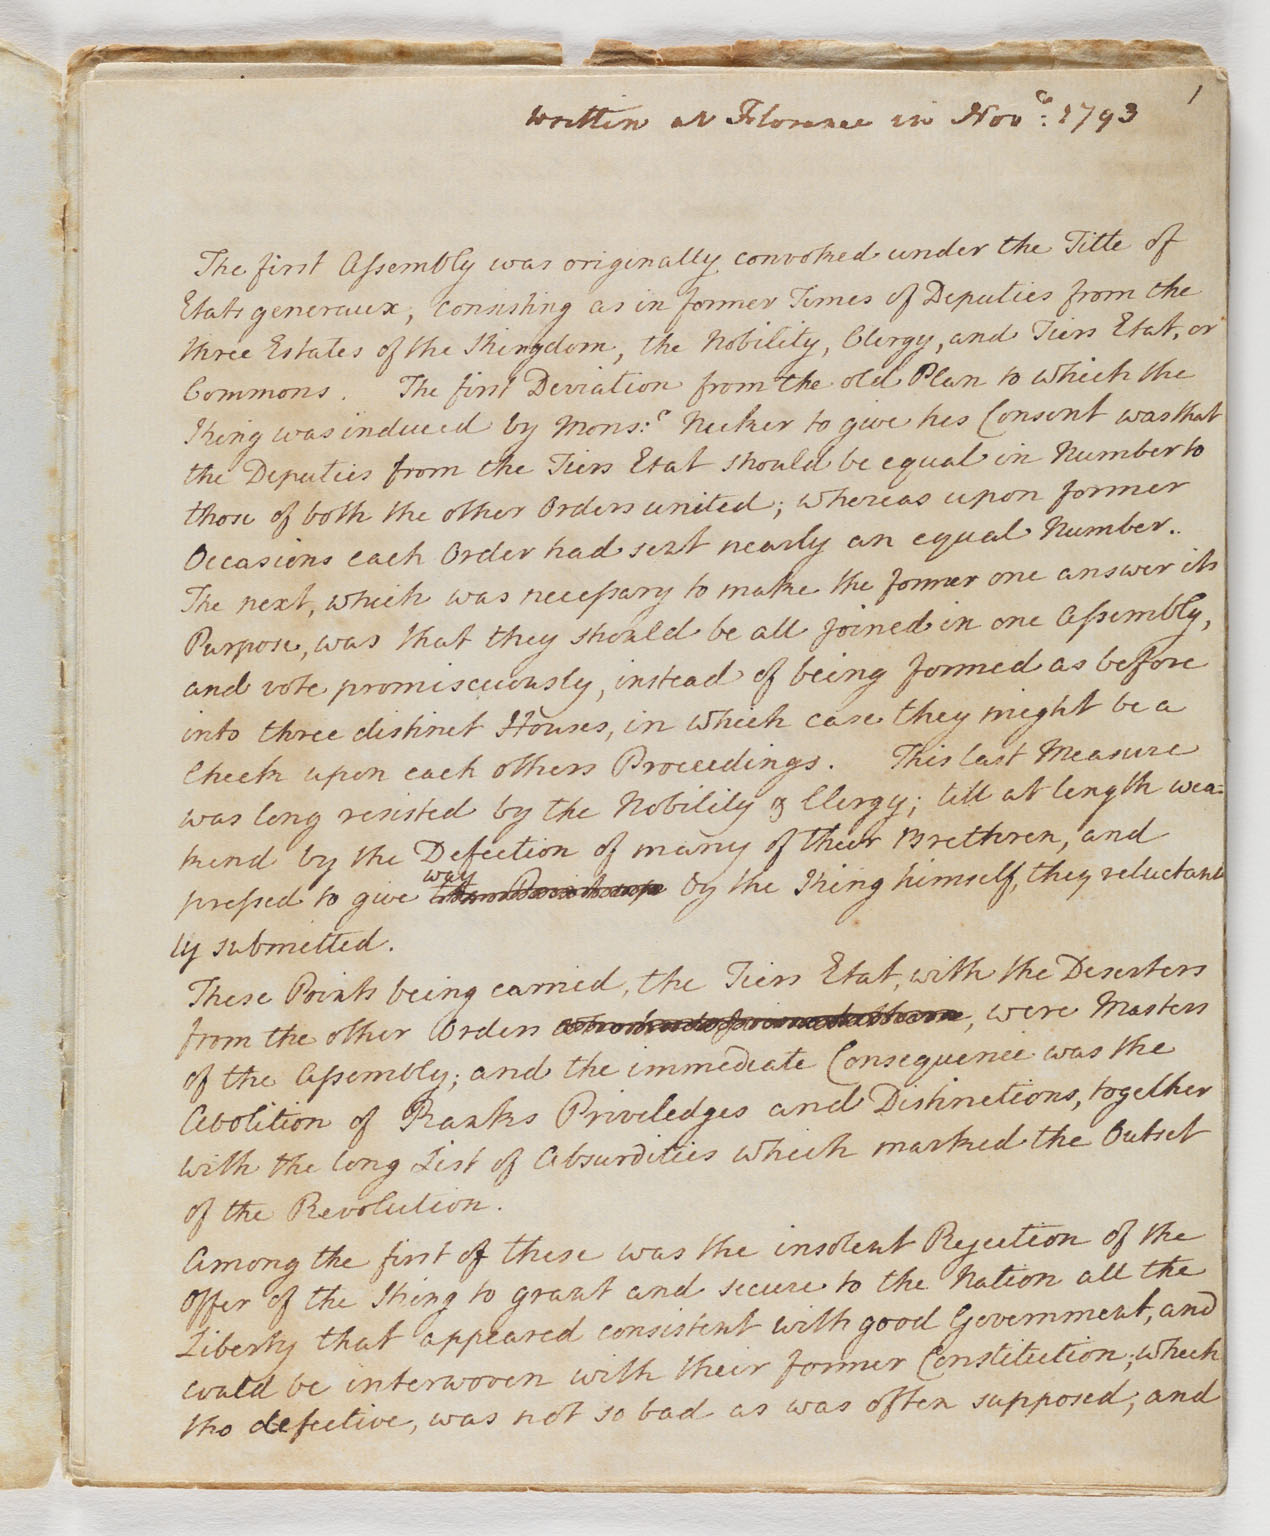 1
written at Florence in Nov.r 1793
The first Assembly was originally convoked under the Title of
Etats generaux, consisting as in former Times of Deputies from the
three Estates of the Kingdom, the Nobility, Clergy, and Tiers Etat, or
Commons. The first Deviation from the old Plan to which the
King was induced by Mons.r Necker to give his Consent was that
the Deputies from the Tiers Etat should be equal in Number to
those of both the other Orders united; whereas upon former
Occasions each Order had sent nearly an equal Number.
The next, which was necessary to make the former one answer its
Purpose, was that they should be all joined in one Assembly,
and vote promiscuously, instead of being formed as before
into three distinct Houses, in which case they might be a
Check upon each others Proceedings. This last Measure
was long resisted by the Nobility & Clergy; till at length wea-
kend by the Defection of many of their Brethren, and
pressed to give way by the King himself, they reluctant
ly submitted.
These Points being carried, the Tiers Etat, with the Deserters
from the other Orders, were Masters
of the Assembly; and the immediate Consequence was the
Abolition of Ranks Priviledges and Distinctions, together
with the long List of Absurdities which marked the Outset
of the Revolution.
Among the first of these was the insolent Rejection of the
Offer of the King to grant and secure to the Nation all the
Liberty that appeared consistent with good Government, and
could be interwoven with their former Constitution; which
tho defective, was not so bad as was often supposed; and